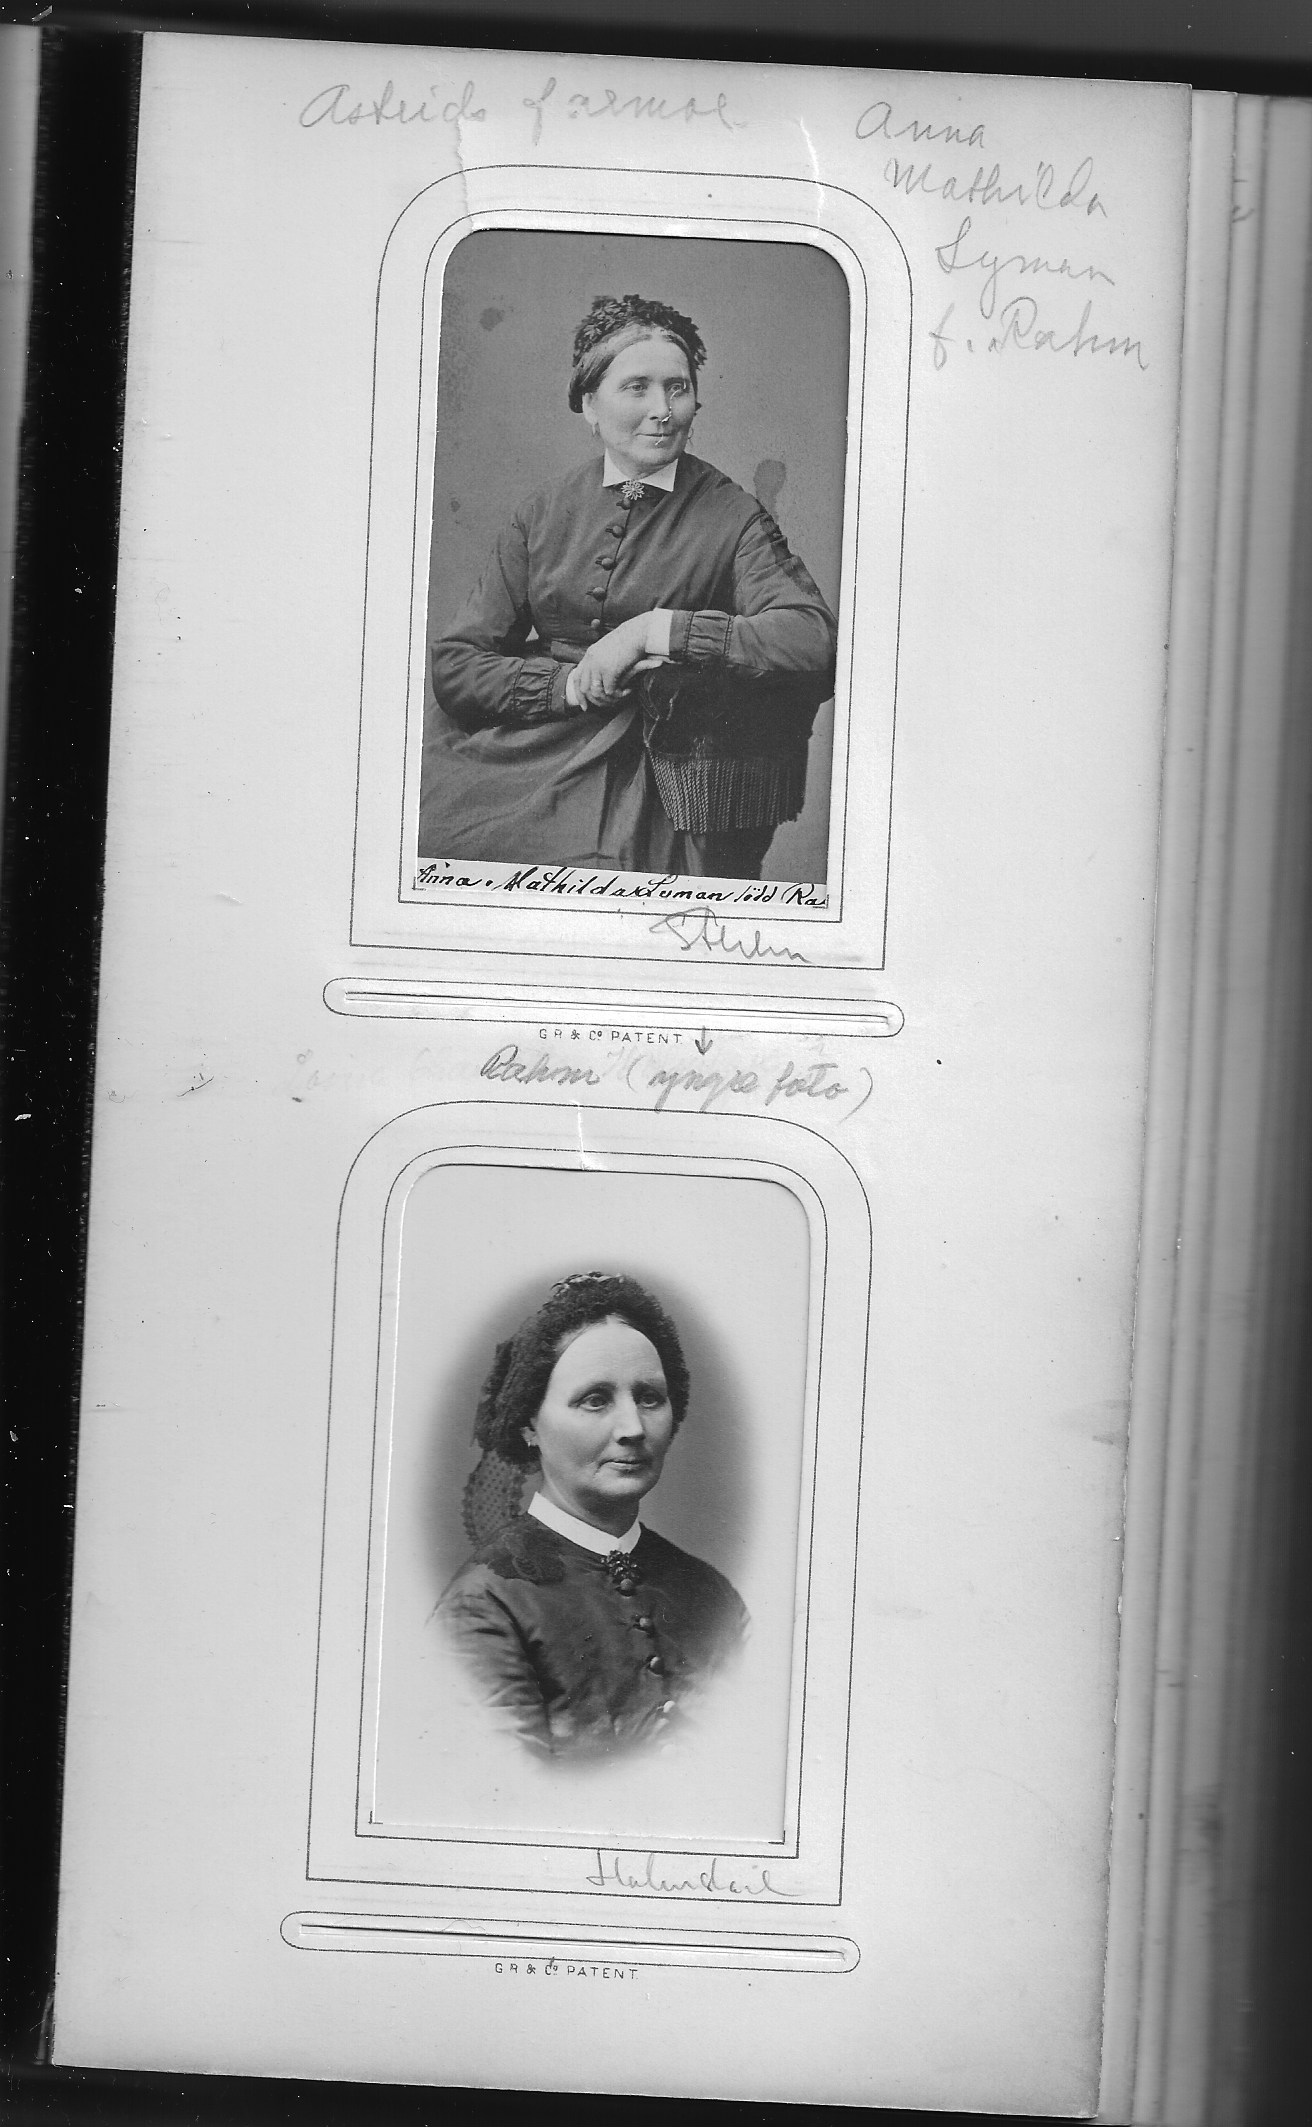 Astrids farmor
Anna
Mathilda
Lyman
f. Rahm
Anna Mathilda Lyman född Ra
Sthlm
GR & Co PATENT
Rahm (yngre foto)
Halmstad
GR & Co PATENT